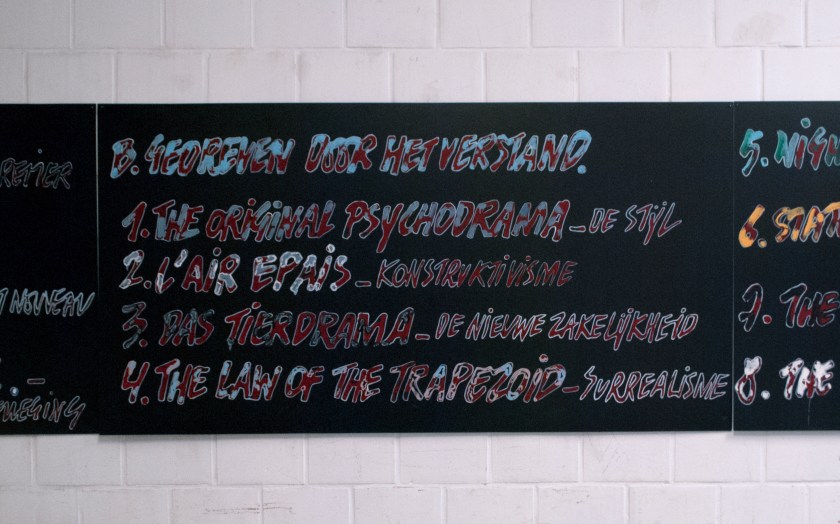 REMIER
T NOUVEAU
B. GEOREMEN DOOR HET VERSTAND.
1. THE ORIGINAL PSYCHODRAMA – DE STIJL
2. L'AIR EPAIS – KONSTRUKTIVISME
3. DAS TIERDRAMA – DE NIEUWE ZAKELIJKHEID
4. THE LAW OF THE TRAPEZOID – SURREALISME
5. NIGH
6. STAT
7. THE
8. THE